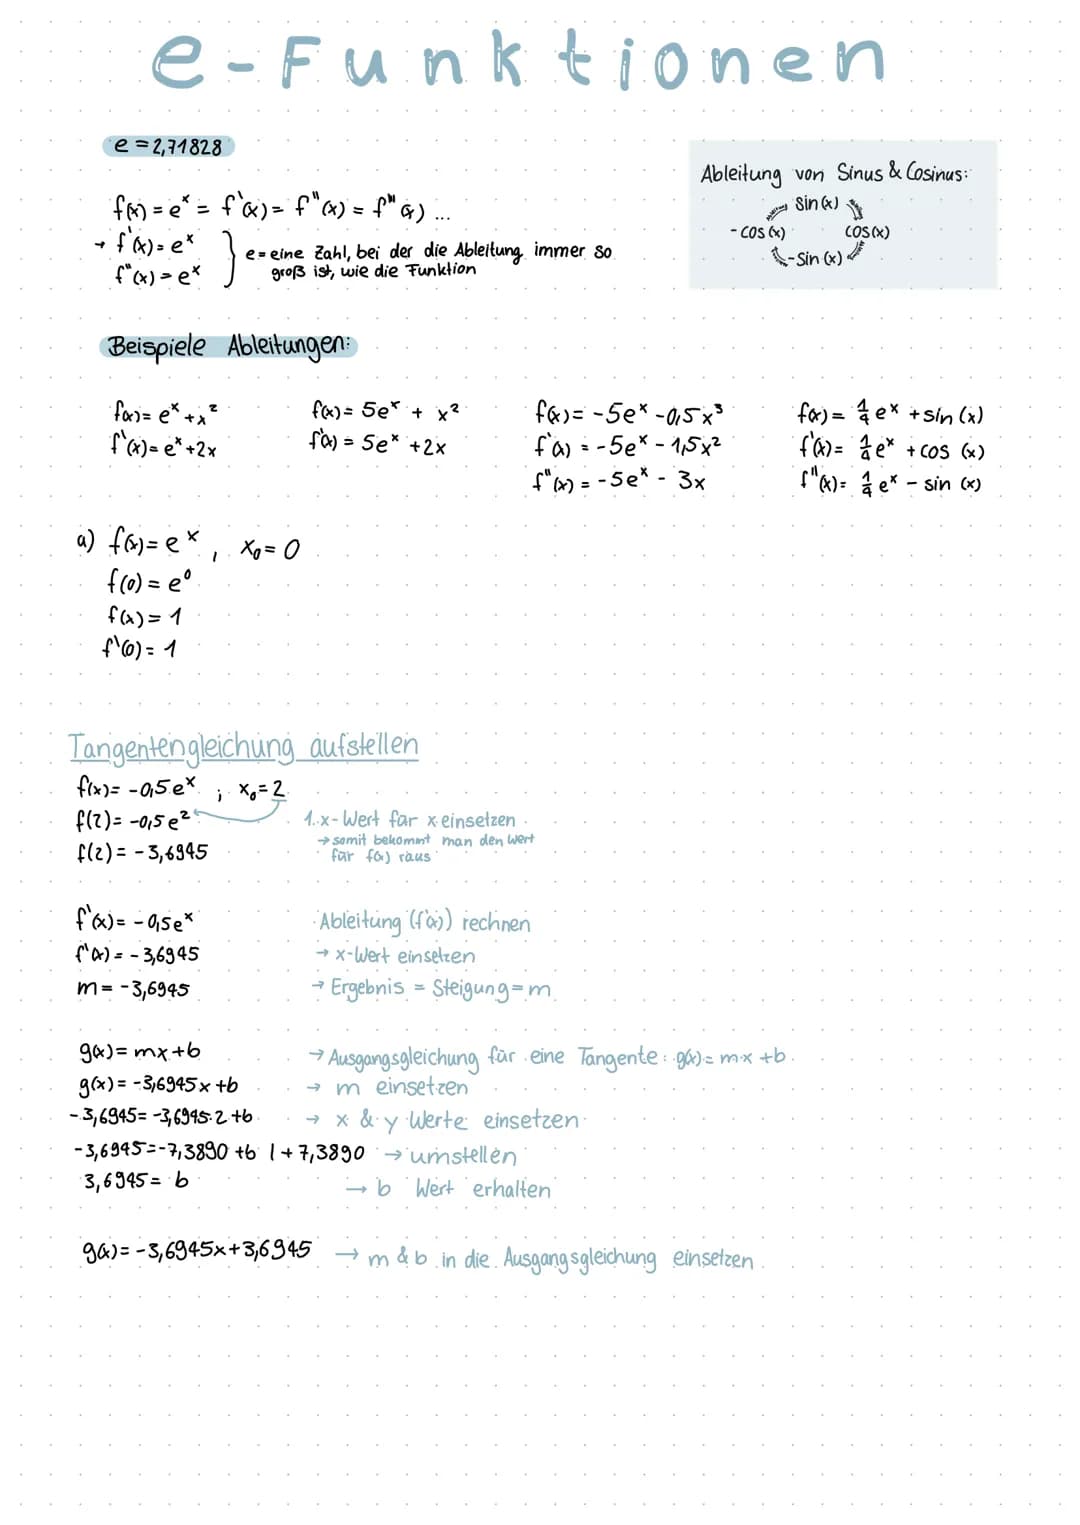 e-Funktionen
e = 2,71828
Ableitung von Sinus & Cosinus:
sin(x)
-cos(x) cos(x)
-sin(x)
f(x) = e^x = f'(x) = f''(x) = f'''(x) ...
→ f'(x) = e^x
f''(x) = e^x
e = eine Zahl, bei der die Ableitung immer so
groß ist, wie die Funktion
Beispiele Ableitungen:
f(x) = e^x + x²
f'(x) = e^x + 2x
f(x) = 5e^x + x²
f'(x) = 5e^x + 2x
f(x) = -5e^x - 0,5x³
f'(x) = -5e^x - 1,5x²
f''(x) = -5e^x - 3x
f(x) = 1/4 e^x + sin(x)
f'(x) = 1/4 e^x + cos(x)
f''(x) = 1/4 e^x - sin(x)
a) f(x) = e^x , x₀ = 0
f(0) = e⁰
f(x) = 1
f'(0) = 1
Tangentengleichung aufstellen
f(x) = -0,5e^x ; x₀ = 2
f(2) = -0,5e² 1. x-Wert für x einsetzen
f(2) = -3,6945 → somit bekommt man den Wert
für f(x) raus
f'(x) = -0,5e^x Ableitung (f'(x)) rechnen
f'(x) = -3,6945 → x-Wert einsetzen
m = -3,6945 → Ergebnis = Steigung = m
g(x) = mx+b → Ausgangsgleichung für eine Tangente: g(x) = m·x + b
g(x) = -3,6945x + b → m einsetzen
-3,6945 = -3,6945·2 + b → x & y Werte einsetzen
-3,6945 = -7,3890 + b | + 7,3890 → umstellen
3,6945 = b → b Wert erhalten
g(x) = -3,6945x + 3,6945 → m & b in die Ausgangsgleichung einsetzen